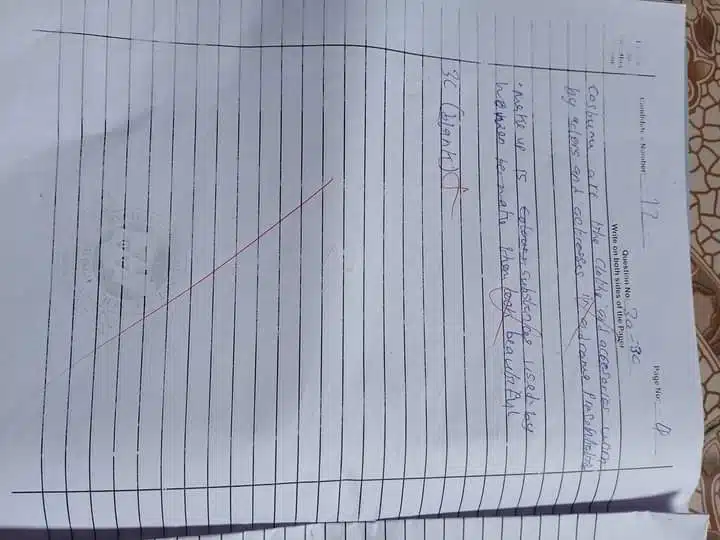 Page No: 4
Question No. 3a-3c
Candidate's Number 12
Write on both sides of the Paper
Costume are the Cloths and accessories worn
by actors and actresses in a drama
• make up is colour substance used by
women to make them look beautiful
3C (blank)